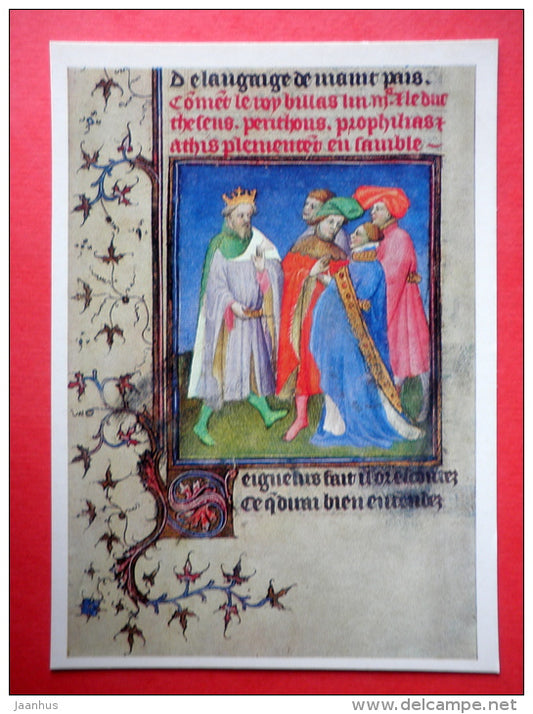 De langaige de maint pais.
Cōmēt le roy billas lin. nr̄. τ le duc
theseus. perithous. prophilias τ
athis plementēt en samble
Seigneurs fait il or escoutez
Ce q̄ dirai bien entendez
jaanhus
www.delcampe.net